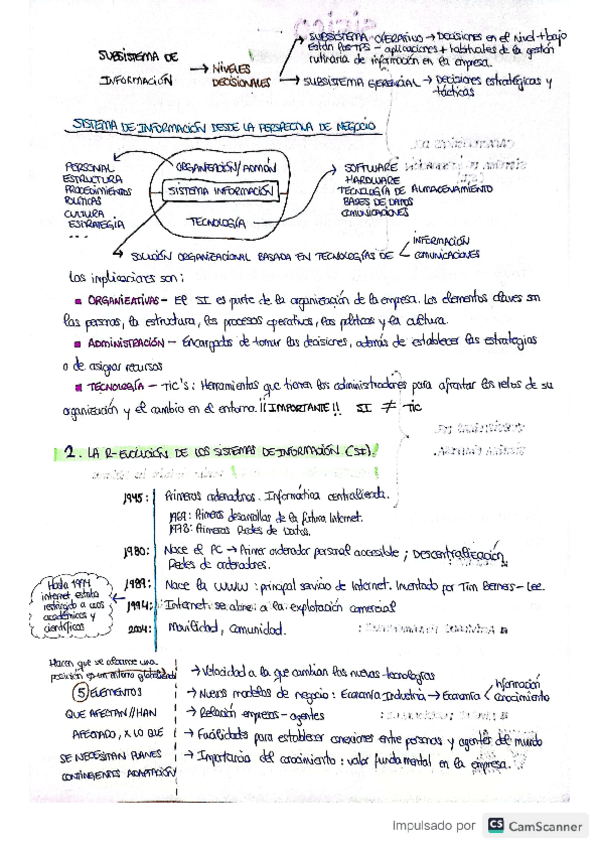 SUBSISTEMA DE
INFORMACIÓN
→ NIVELES
DECISIONALES
SUBSISTEMA OPERATIVO → Decisiones en el nivel + bajo
están los TPS - aplicaciones + habituales de la gestión
rutinaria de información en la empresa.
→ SUBSISTEMA GERENCIAL → Decisiones estratégicas y
tácticas
SISTEMA DE INFORMACIÓN DESDE LA PERSPECTIVA DE NEGOCIO
PERSONAL
ESTRUCTURA
PROCEDIMIENTOS
POLÍTICAS
CULTURA
ESTRATEGIA
...
ORGANIZACIÓN/ADMÓN
SISTEMA INFORMACIÓN
TECNOLOGÍA
SOFTWARE
HARDWARE
TECNOLOGÍA DE ALMACENAMIENTO
BASES DE DATOS
COMUNICACIONES
SOLUCIÓN ORGANIZACIONAL BASADA EN TECNOLOGÍAS DE
INFORMACIÓN
COMUNICACIONES
Las implicaciones son:
▪ ORGANIZATIVAS - El SI es parte de la organización de la empresa. Los elementos claves son
las personas, la estructura, los procesos operativos, las políticas y la cultura.
▪ ADMINISTRACIÓN - Encargados de tomar las decisiones, además de establecer las estrategias
o de asignar recursos
▪ TECNOLOGÍA - TIC's: Herramientas que tienen los administradores para afrontar los retos de su
organización y el cambio en el entorno. ¡¡IMPORTANTE!! SI ≠ TIC
2. LA R-EVOLUCIÓN DE LOS SISTEMAS DE INFORMACIÓN (SI).
1945: Primeros ordenadores. Informática centralizada.
1969: Primeros desarrollos de la futura Internet.
1978: Primeras Redes de Datos.
1980: Nace el PC → Primer ordenador personal accesible; Descentralización,
Redes de ordenadores.
1989: Nace la WWW: principal servicio de Internet. Inventado por Tim Berners-Lee.
1994: Internet se abre a la explotación comercial
2004: Movilidad, Comunidad.
Hasta 1994
internet estaba
restringido a usos
académicos y
científicos
Hacen que se alcance una
posición en un entorno globalizado
5 ELEMENTOS
QUE AFECTAN//HAN
AFECTADO, A LO QUE
SE NECESITAN PLANES
CONTINGENTES ADAPTACIÓN
→ Velocidad a la que cambian las nuevas tecnologías
→ Nuevos modelos de negocio: Economía Industria → Economía
Información
Conocimiento
→ Relación empresas - agentes
→ Facilidades para establecer conexiones entre personas y agentes del mundo
→ Importancia del conocimiento: valor fundamental en la empresa.
Impulsado por CS CamScanner